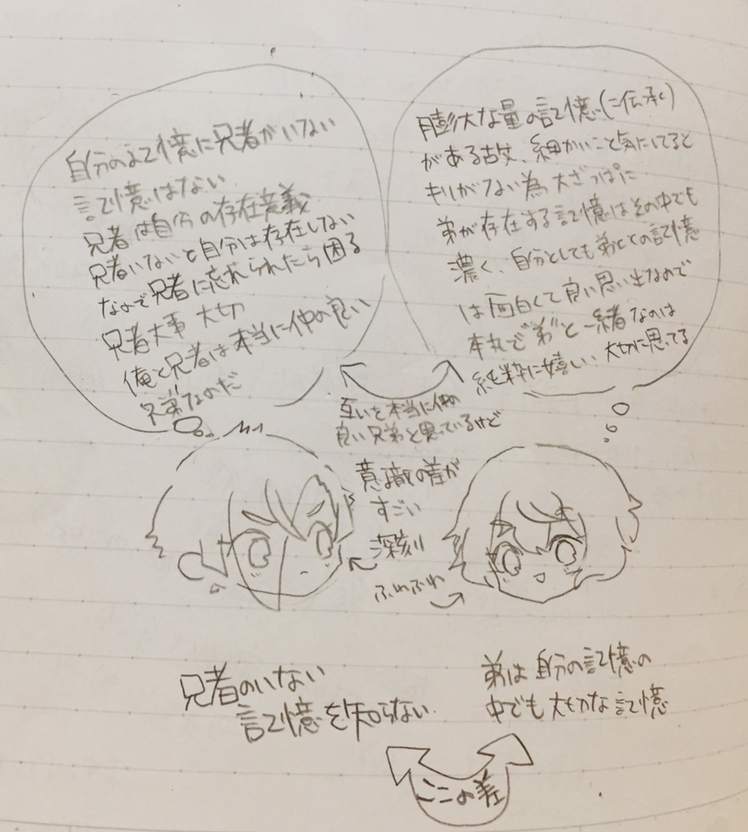 自分の記憶に兄者がいない
記憶はない
兄者は自分の存在意義
兄者いないと自分は存在しない
なので兄者に忘れられたら困る
兄者大事 大切
俺と兄者は本当に仲の良い
兄弟なのだ
膨大な量の記憶(=伝承)
がある故、細かいこと気にしてると
キリがない為大ざっぱに
弟が存在する記憶はその中でも
濃く、自分としても弟との記憶
は面白くて良い思い出なので
本丸で"弟"と一緒なのは
純粋に嬉しい、大切に思ってる
互いを本当に仲の
良い兄弟と思っているけど
意識の差が
すごい
深刻
ふわふわ
兄者のいない
記憶を知らない
弟は自分の記憶の
中でも大切な記憶
ここの差